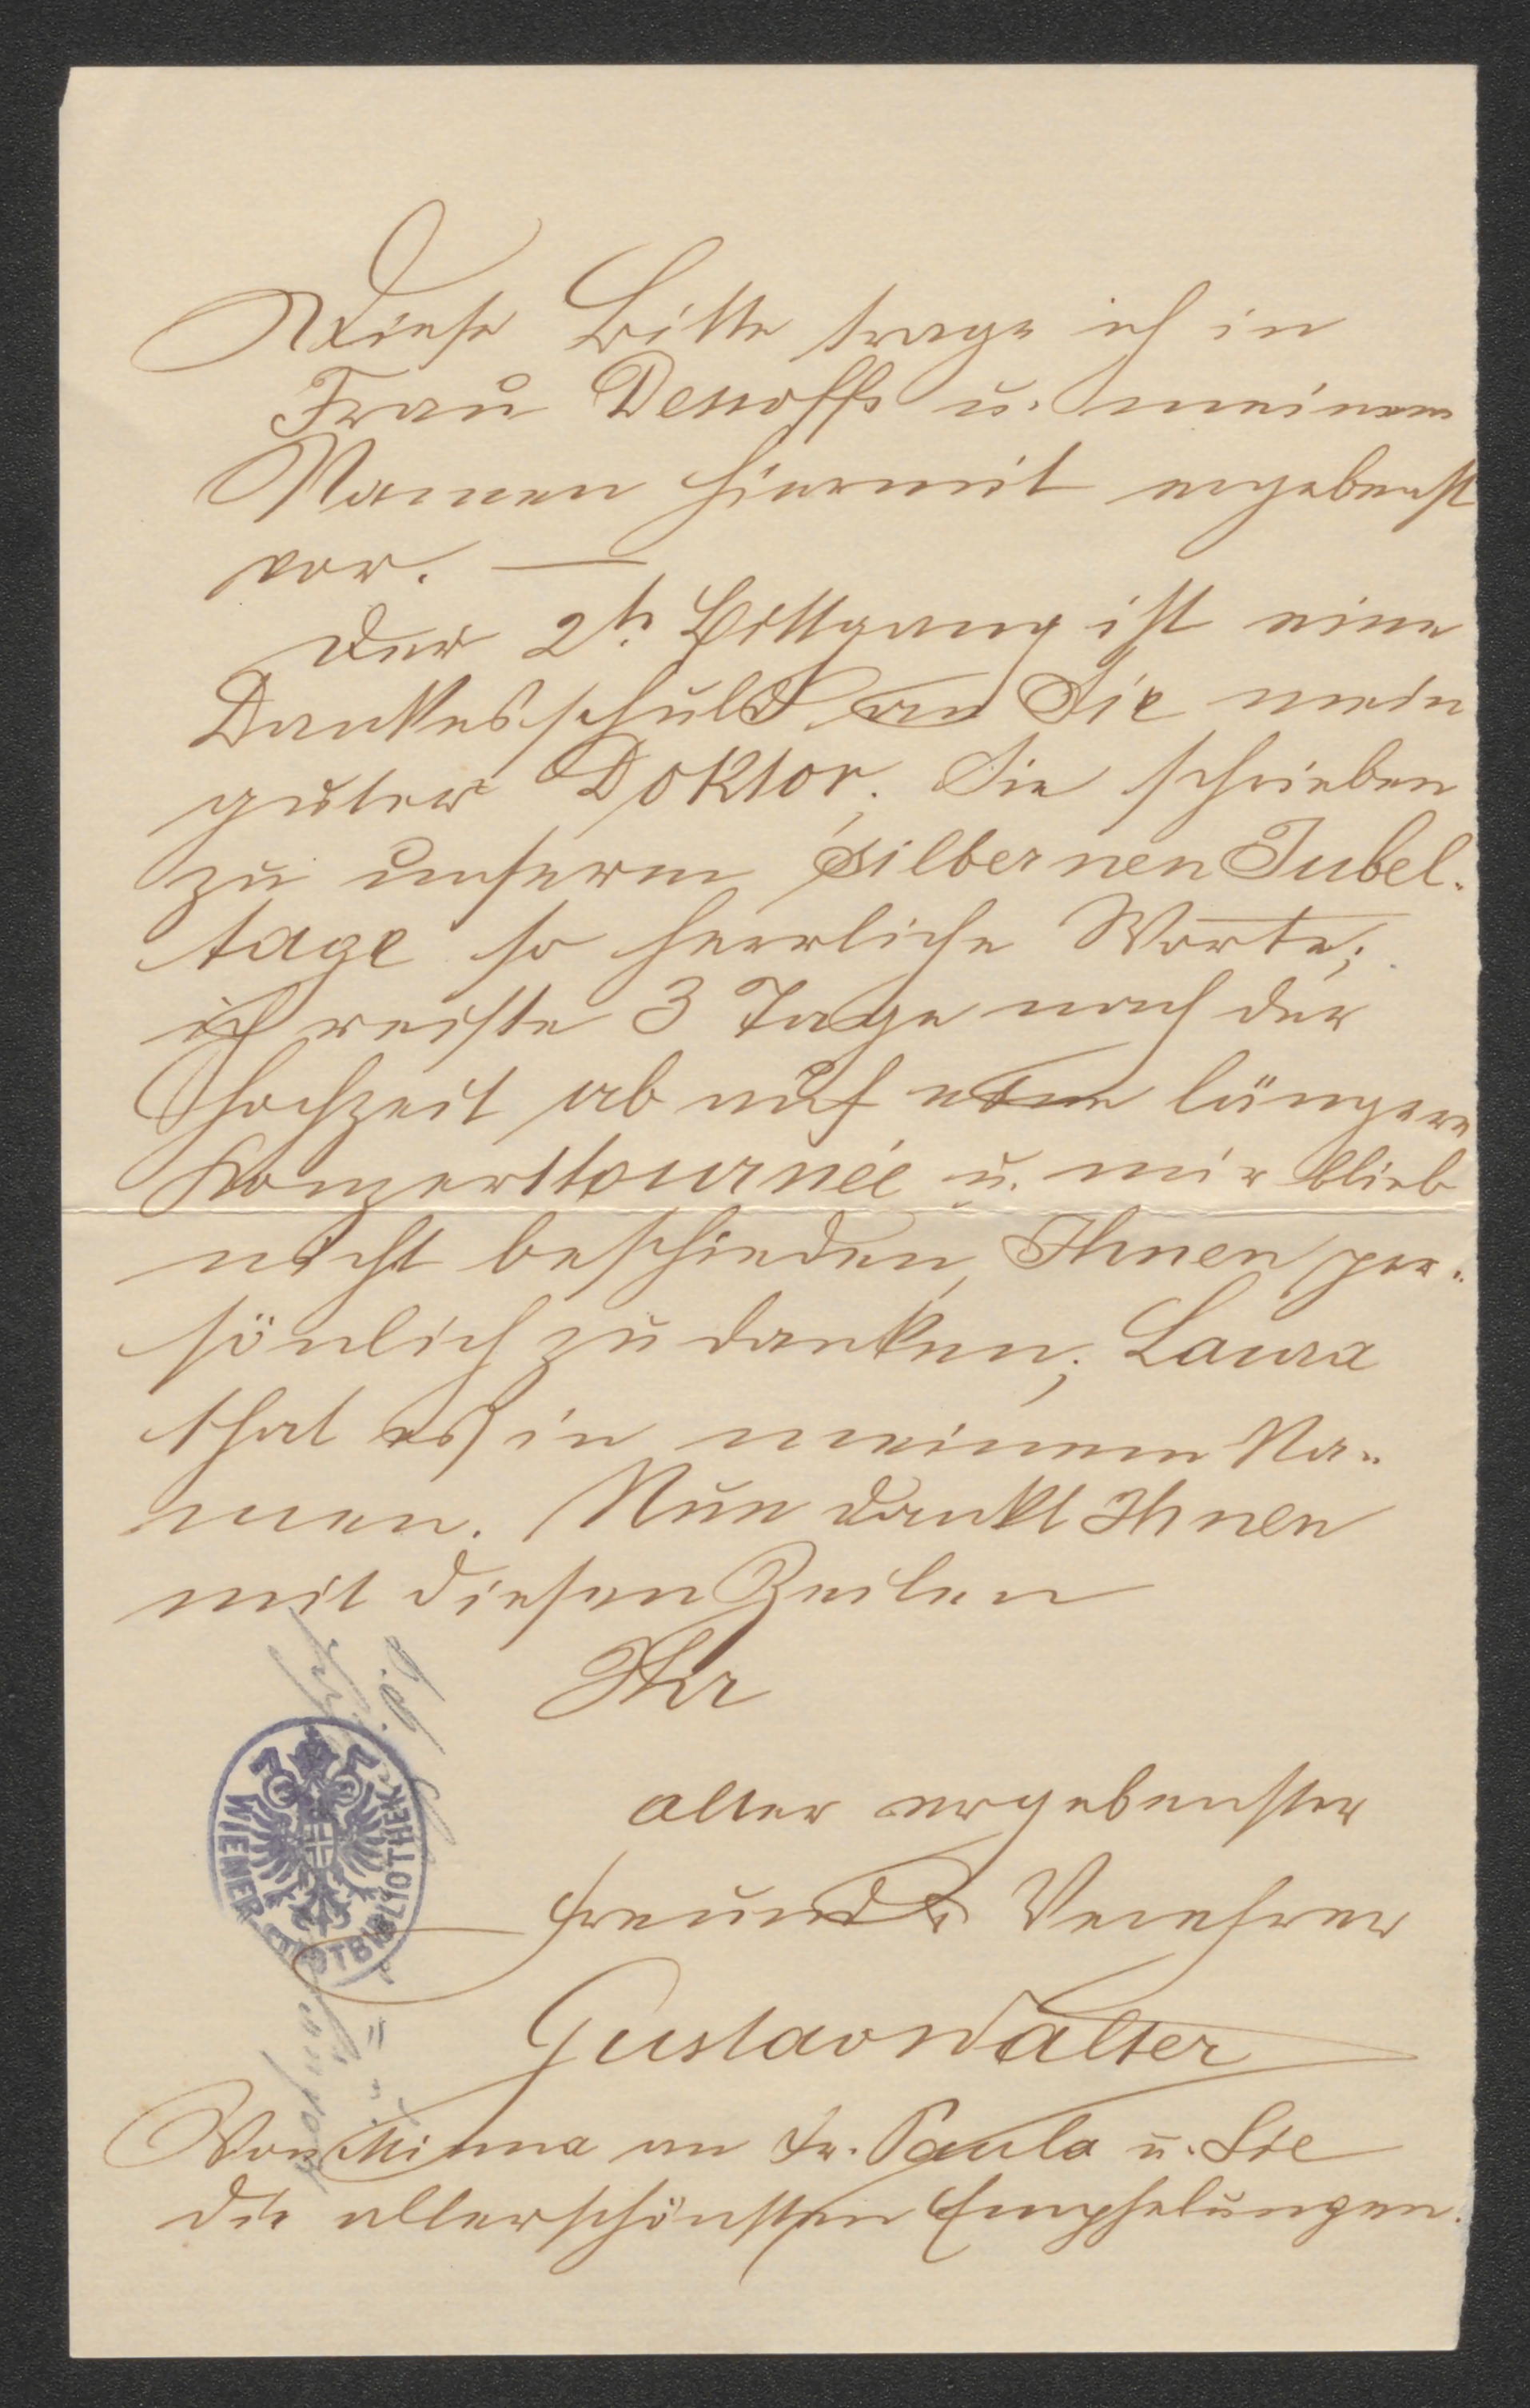 Diese Bitte trage ich in
Frau Dessoffs u. meinem
Namen hiermit ergebenst
vor. —
Der 2te Bittgang ist eine
Dankesschuld an Sie mein
guter Doktor. Sie schrieben
zu unserem silbernen Jubel-
tage so herrliche Worte;
ich reiste 3 Tage nach der
Hochzeit ab auf eine längere
Konzerttournée u. mir blieb
nicht beschieden, Ihnen per-
sönlich zu danken; Laura
that es in meinem Na-
men. Nun dankt Ihnen
mit diesen Zeilen
Ihr
alter ergebenster
Freund & Verehrer
Gustav Walter
Von Minna an Fr. Paula u. Sie
die allerschönsten Empfelungen.
WIENER STADTBIBLIOTHEK